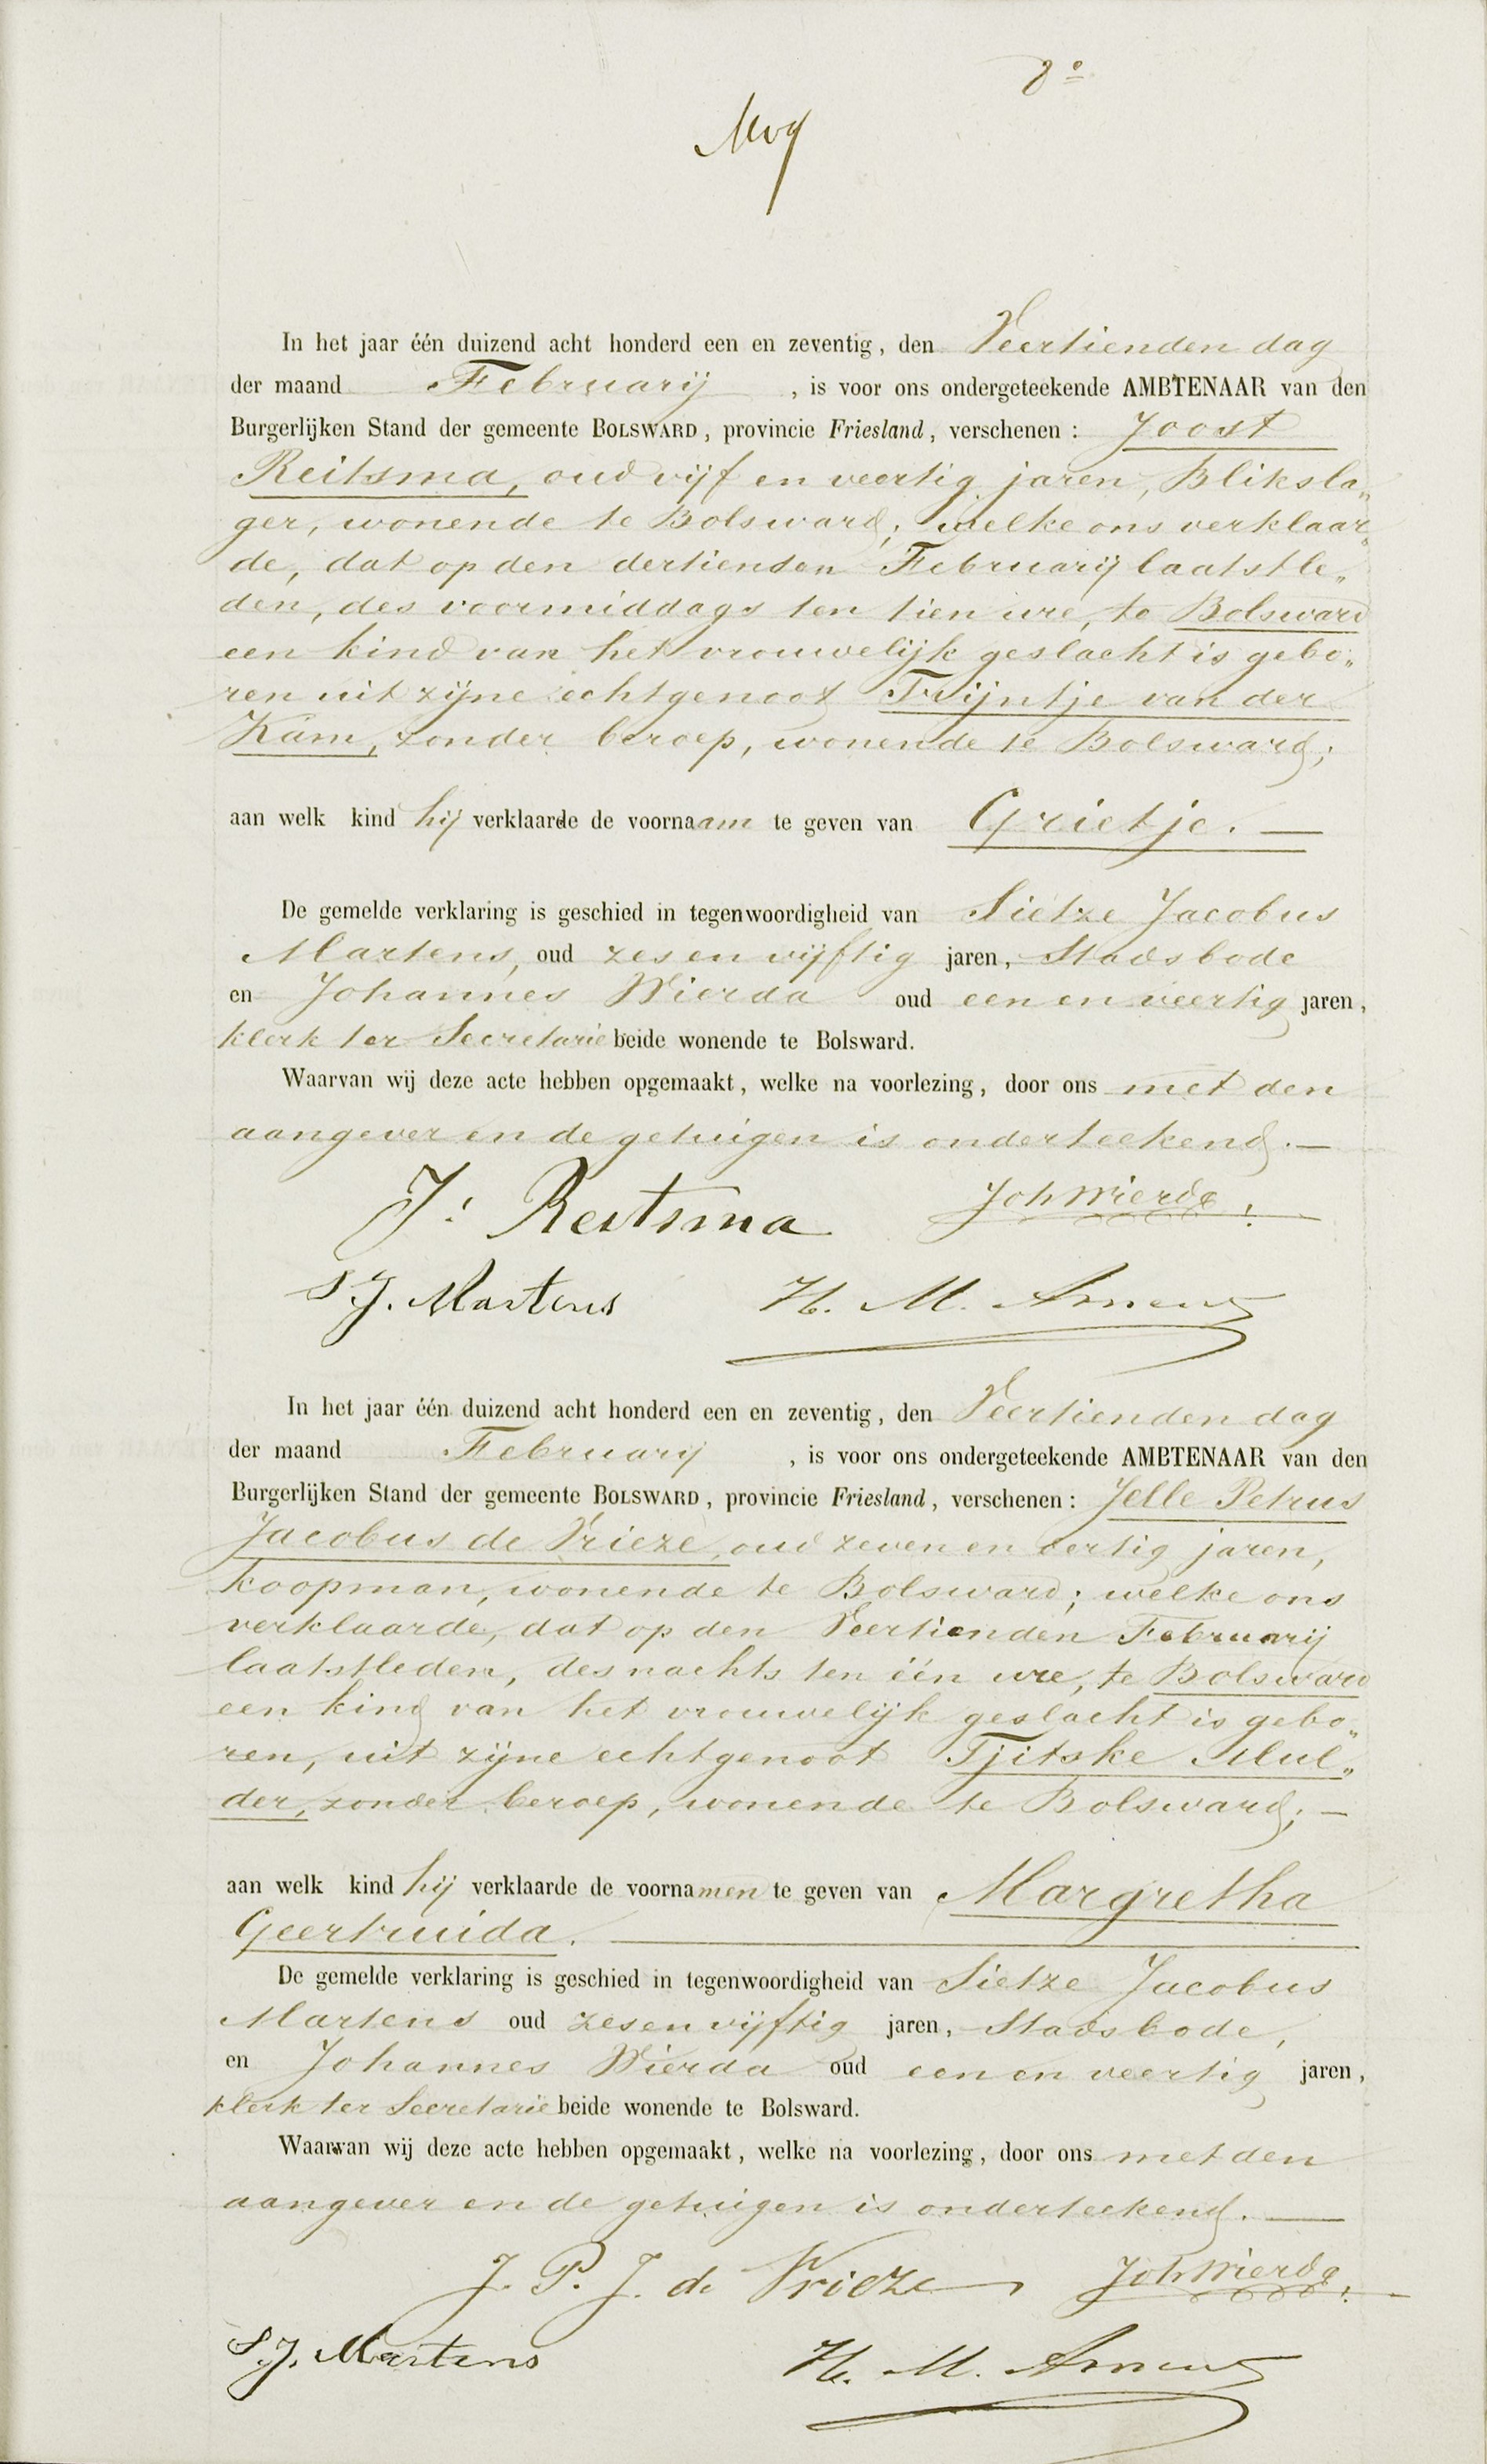 8º
In het jaar één duizend acht honderd een en zeventig, den Veertienden dag
der maand Februarij, is voor ons ondergeteekende AMBTENAAR van den
Burgerlijken Stand der gemeente BOLSWARD, provincie Friesland, verschenen: Joost
Reitsma, oud vijf en veertig jaren, Bliksla„
ger, wonende te Bolsward; welke ons verklaar„
de, dat op den dertienden Februarij laatstle„
den, des voormiddags ten tien ure, te Bolsward
een kind van het vrouwelijk geslacht is gebo„
ren uit zijne echtgenoot Trijntje van der
Kam, zonder beroep, wonende te Bolsward;
aan welk kind hij verklaarde de voornaam te geven van Grietje. —
De gemelde verklaring is geschied in tegenwoordigheid van Sietze Jacobus
Martens, oud zes en vijftig jaren, Stadsbode
en Johannes Wierda oud een en veertig jaren,
klerk ter Secretarie beide wonende te Bolsward.
Waarvan wij deze acte hebben opgemaakt, welke na voorlezing, door ons met den
aangever en de getuigen is onderteekend. —
J: Reitsma Joh Wierda
S J. Martens H. M.
In het jaar één duizend acht honderd een en zeventig, den Veertienden dag
der maand Februarij, is voor ons ondergeteekende AMBTENAAR van den
Burgerlijken Stand der gemeente BOLSWARD, provincie Friesland, verschenen: Jelle Petrus
Jacobus de Vrieze, oud zeven en dertig jaren,
koopman, wonende te Bolsward; welke ons
verklaarde, dat op den Veertienden Februarij
laatstleden, des nachts ten één ure, te Bolsward
een kind van het vrouwelijk geslacht is gebo„
ren, uit zijne echtgenoot Tjitske Mul„
der, zonder beroep, wonende te Bolsward; —
aan welk kind hij verklaarde de voornamen te geven van Margretha
Geertruida. —
De gemelde verklaring is geschied in tegenwoordigheid van Sietze Jacobus
Martens oud zes en vijftig jaren, Stadsbode,
en Johannes Wierda oud een en veertig jaren,
klerk ter Secretarie beide wonende te Bolsward.
Waarvan wij deze acte hebben opgemaakt, welke na voorlezing, door ons met den
aangever en de getuigen is onderteekend. —
J. P. J. de Vrieze Joh Wierda
S J. Martens H. M.